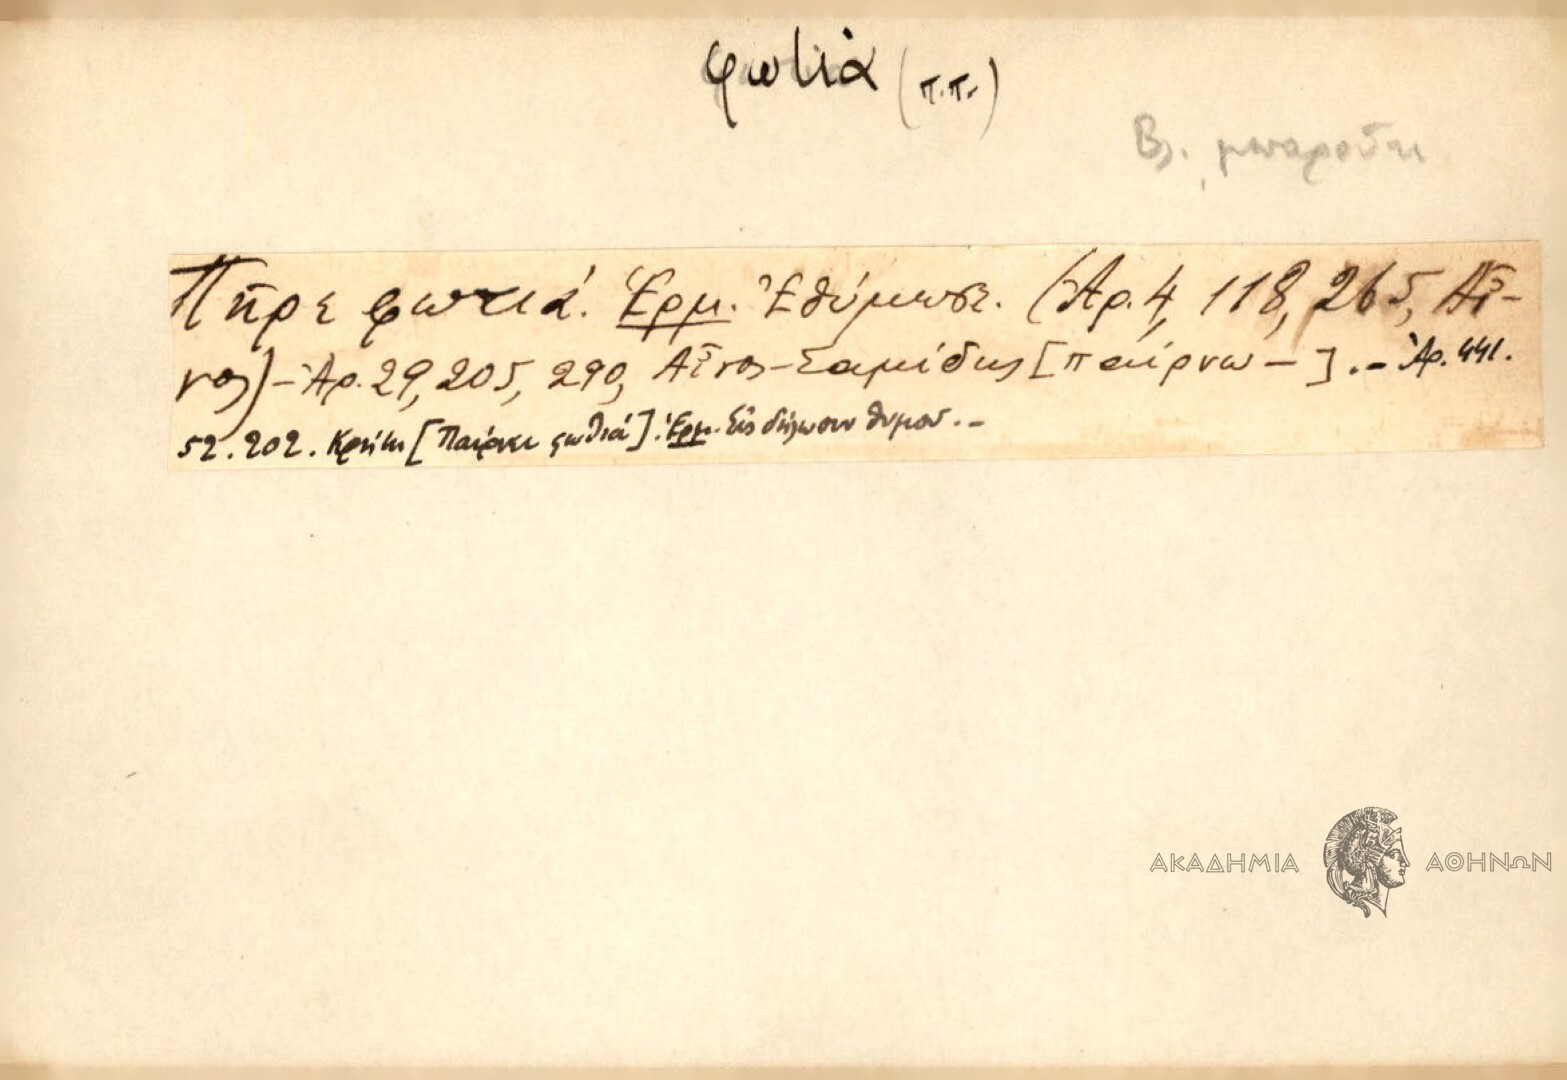 φωτιά (π.π.)
Βλ. μπαρούτι
Πῆρε φωτιά. Ἑρμ. Ἐθύμωσε. (Ἀρ. 4, 118, 265, Αἶ-
νος) - Ἀρ. 29, 205, 290, Αἶνος - Σαμίδης [παίρνω - ] . - Ἀρ. 441.
52. 202. Κρήτη [Παίρνει φωθιά]. Ἑρμ. Εἰς δήλωσιν θυμοῦ. -
ΑΚΑΔΗΜΙΑ ΑΘΗΝΩΝ